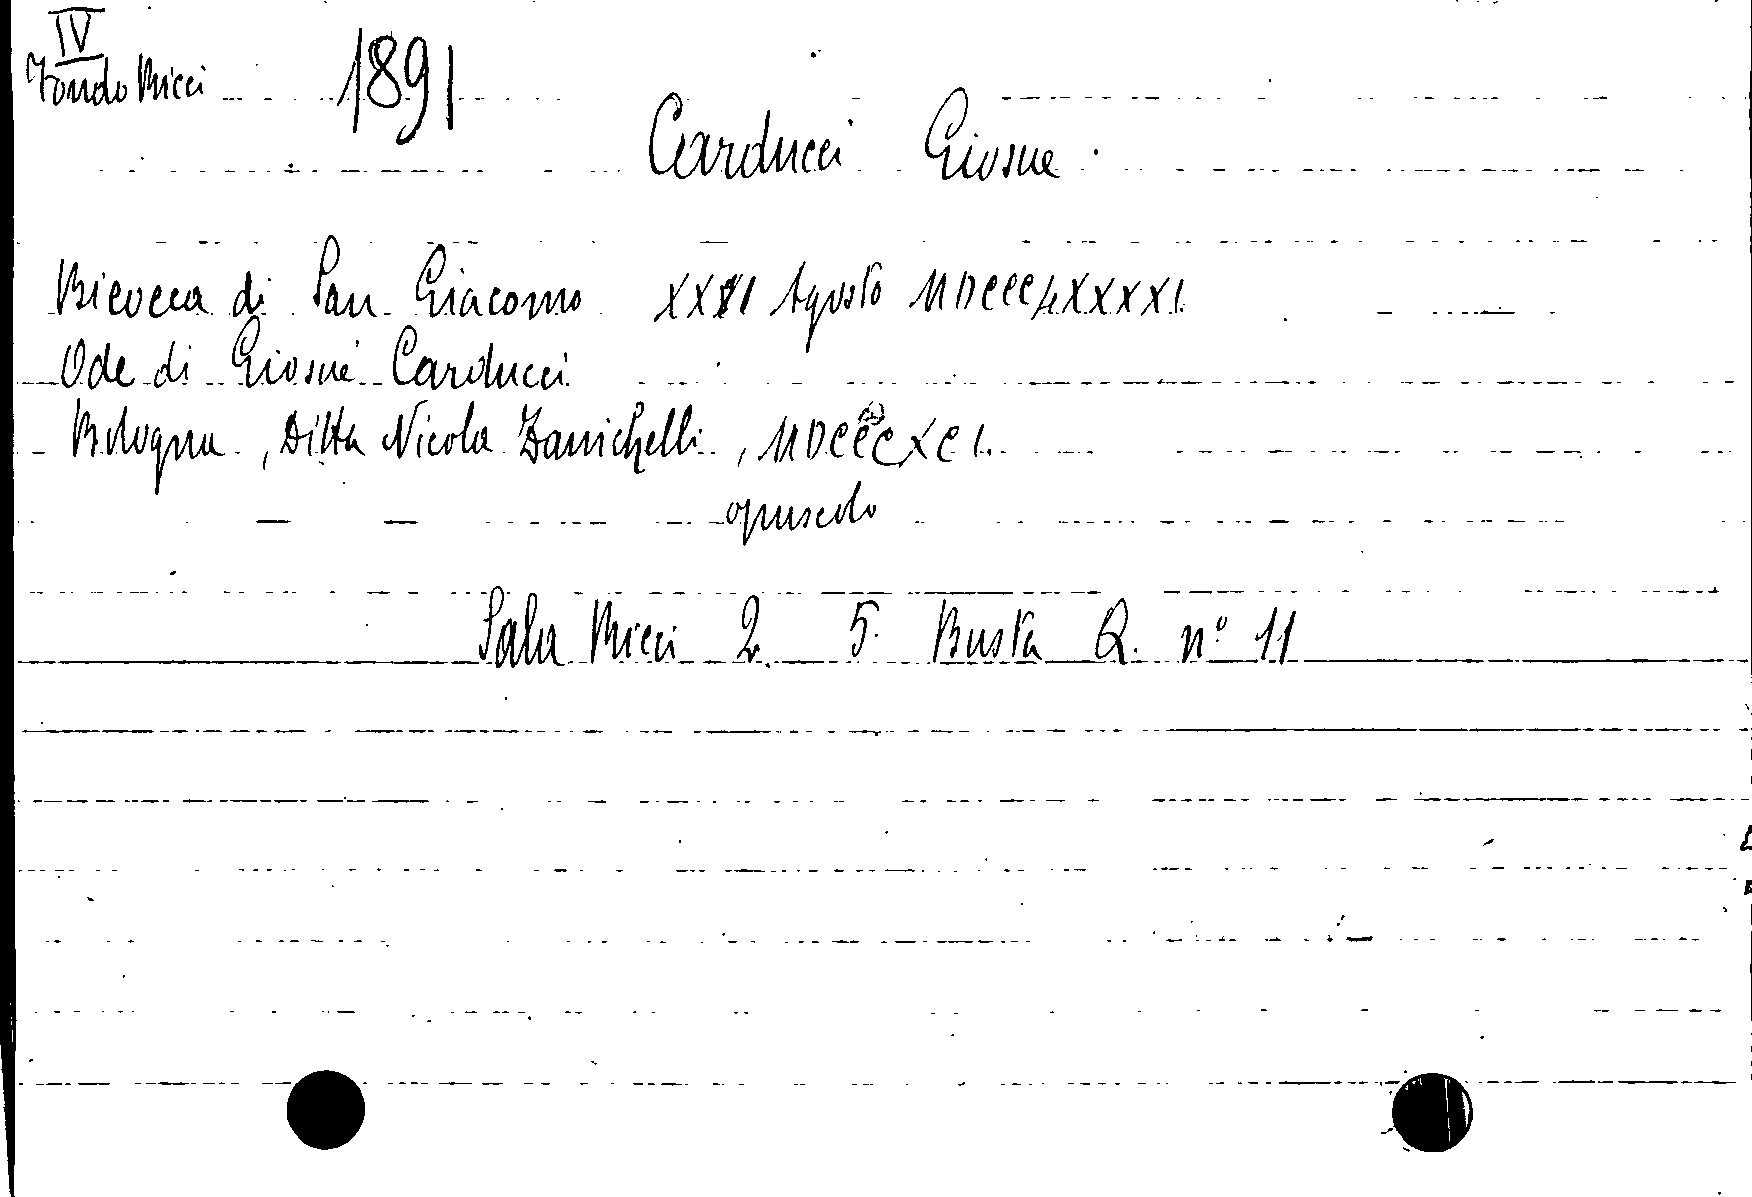 IV
Fondo Ricci 1891
Carducci Giosue.
Bicocca di San Giacomo XXXI Agosto MDCCCLXXXXI.
Ode di Giosuè Carducci
Bologna, Ditta Nicola Zanichelli, MDCCCXCI.
opuscolo
Sala Ricci 2. 5. Busta Q. n° 11